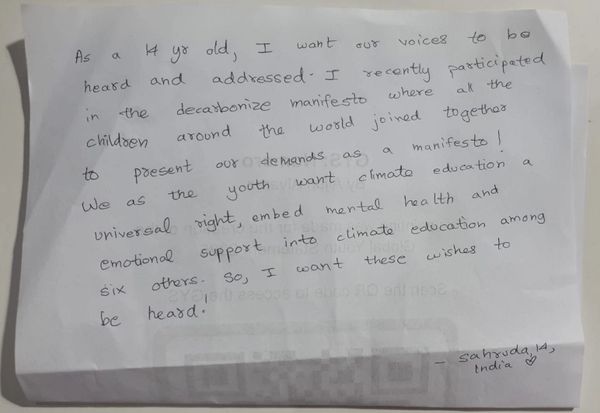 As a 14 yr old, I want our voices to be
heard and addressed. I recently participated
in the decarbonize manifesto where all the
children around the world joined together
to present our demands as a manifesto!
We as the youth want climate education a
universal right, embed mental health and
emotional support into climate education among
six others. So, I want these wishes to
be heard!
- Sahruda, 14,
India